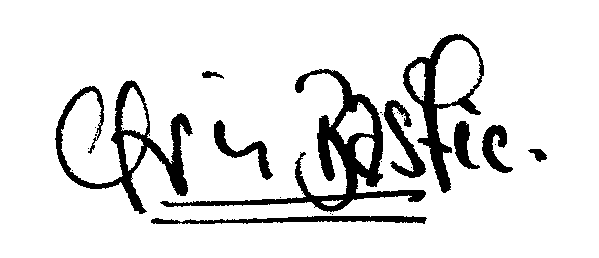 Chris Bastic.